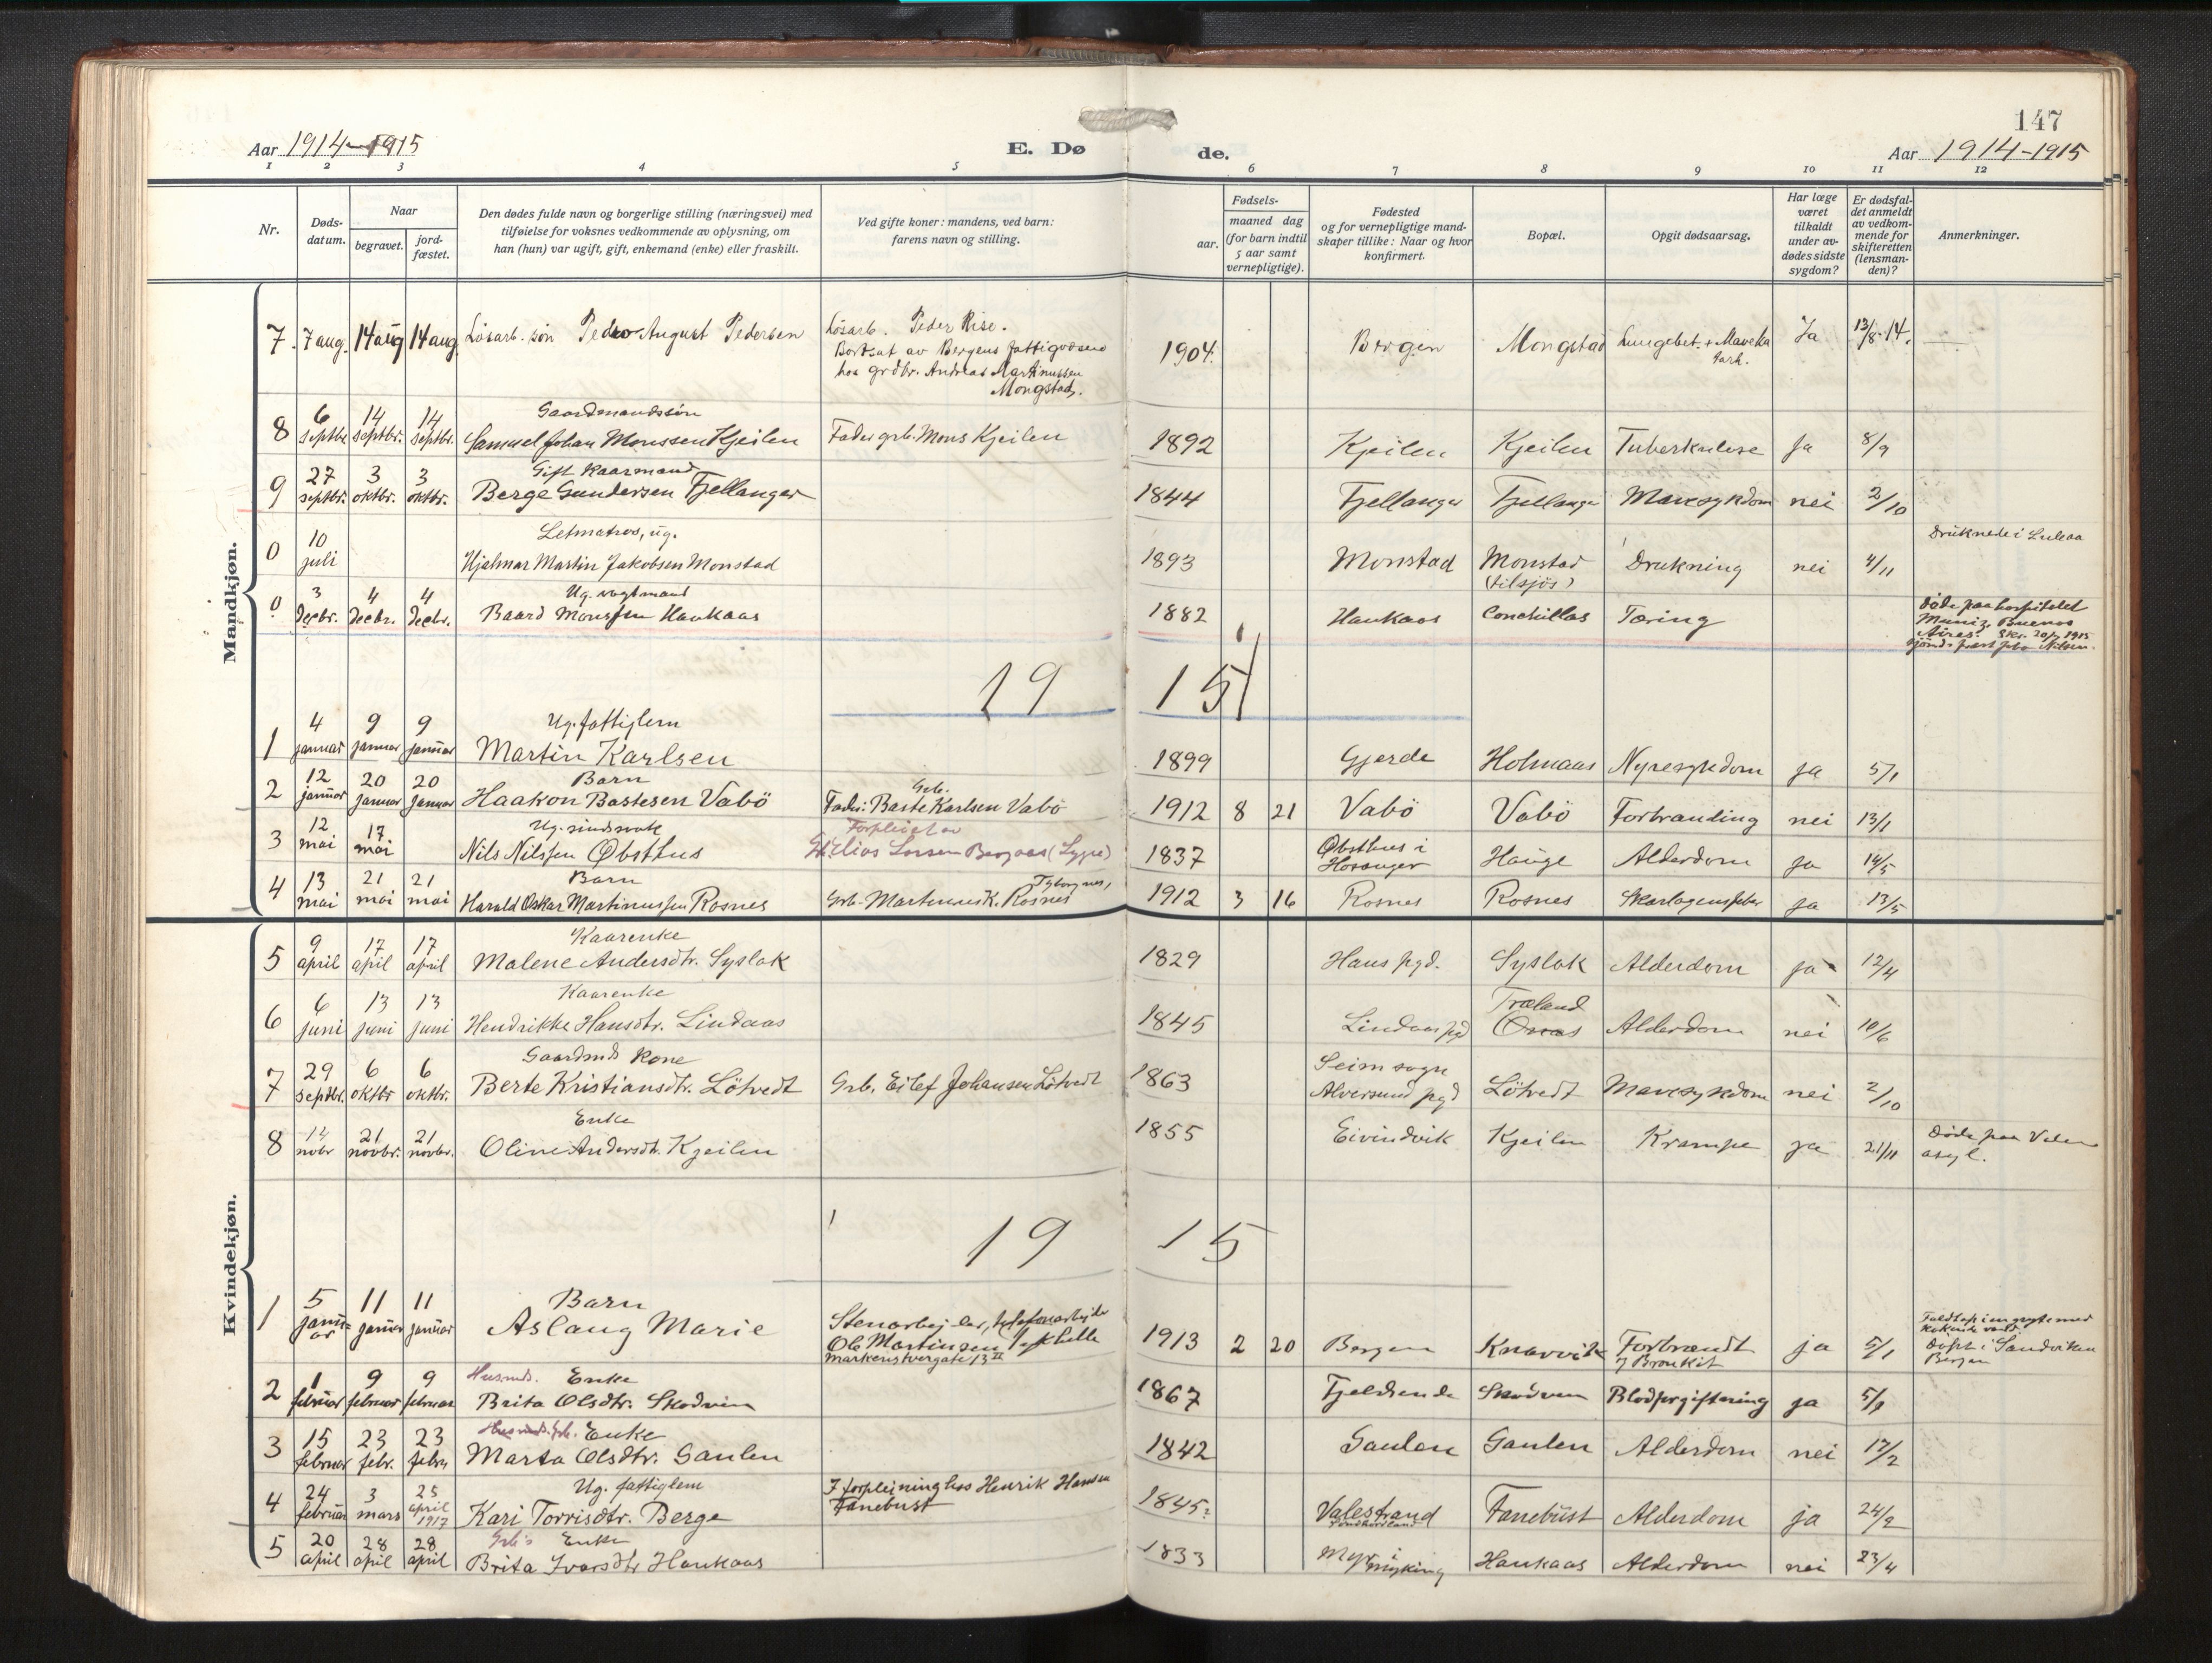 147
Aar 1914-1915
E. Dø
de.
Aar 1914-1915
1 2 3 4 5 6 7 8 9 10 11 12
Nr.
Døds-
datum.
Naar
begravet.
jord-
fæstet.
Den dødes fulde navn og borgerlige stilling (næringsvei) med
tilføielse for voksnes vedkommende av oplysning, om
han (hun) var ugift, gift, enkemand (enke) eller fraskilt.
Ved gifte koner: mandens, ved barn:
farens navn og stilling.
Fødsels-
aar.
maaned dag
(for barn indtil
5 aar samt
vernepligtige).
Fødested
og for vernepligtige mand-
skaper tillike: Naar og hvor
konfirmert.
Bopæl.
Opgit dødsaarsag.
Har læge
været
tilkaldt
under av-
dødes sidste
sygdom?
Er dødsfal-
det anmeldt
av vedkom-
mende for
skifteretten
(lensman-
den)?
Anmerkninger.
Mandkjøn.
7 7 aug. 14 aug 14 aug. Løsarb. søn Pedro August Pedersen
Løsarb. Peder Rise.
Bortsat av Bergens fattigvæsen
hos grdbr. Andreas Martinussen
Mongstad.
1904. Bergen Mongstad Lungebet. + Maveka
tarh.
Ja 13/8-14.
8 6 septbr. 14 septbr. 14 septbr.
Gaardmandssøn
Samuel Johan Monssen Kjeilen Fader grb. Mons Kjeilen 1892 Kjeilen Kjeilen Tuberkulose ja 8/9
9 27 septbr. 3 oktbr. 3 oktbr.
Gift kaarmand
Berge Gundersen Fjellanger 1844 Fjellanger Fjellanger Mavesykdom nei 2/10
0 10 juli
Letmatros, ug.
Hjalmar Martin Jakobsen Monstad 1893 Monstad Monstad
(tilsjøs)
Drukning nei 4/11
Druknede i Luleaa
0 3 Decbr. 4 Decbr. 4 Decbr.
Ug. vagtmand
Baard Monssen Haukaas 1882 Haukaas Conchillas Tæring
Døde paa hospitalet
Muniz, Buenos
Aires. Skr. 20/7 1915
sjømdspræst Nilsen.
1915
1 4 januar 9 januar 9 januar
Ug. fattiglem
Martin Karlsen 1899 Gjerde Holmaas Nyresykdom ja 5/1
2 12 januar 20 januar 20 januar
Barn
Haakon Bastesen Vabö
Grb.
Fader: Baste Karlsen Vabö 1912 8 21 Vabö Vabö Forbranding nei 13/1
3 12 mai 17 mai
Ug. sindssvak
Nils Nilssen Øbsthus
Forpleiet av
Elias Larsen
1837 Øbsthus i
Hosanger
Hauge Alderdom ja 14/5
4 13 mai 21 mai 21 mai
Barn
Harald Oskar Martinussen Rosnes
Grb. Martinus K. Rosnes 1912 3 16 Rosnes Rosnes Skarlagensfeber ja 13/5
Kvindekjøn.
5 9 april 17 april 17 april
Kaarenke
Malene Andersdtr. Syslak 1829 Haus pgd. Syslak Alderdom ja 12/4
6 6 juni 13 juni 13 juni
Kaarenke
Hendrikke Hansdtr. Lindaas 1845 Lindaas pgd
Træland
Alderdom nei 10/6
7 29 septbr. 6 oktbr 6 oktbr.
Gaardmds kone
Berte Kristiansdtr. Lötvedt Grb. Eilef Johansen Lötvedt 1863
Seim sogn
Alversund pgd
Lötvedt Mavesykdom nei 2/10
8 14 nobr 21 novbr. 21 novbr.
Enke
Oline Andersdtr. Kjeilen 1855 Eivindvik Kjeilen Krampe ja 21/11
Døde paa Valen
asyl.
1915
1 5 januar 11 januar 11 januar
Barn
Aslaug Marie
Stenarbejder, telefonarbejder
Ole Martinsen
Markensvergate 13 II
1913 2 20 Bergen Knarvik Forbrændt
& Bronkit
ja 5/1
Faldt i en gryte med
kokende vand
Døpt i Sandviken
Bergen
2 1 februar 9 februar 9 februar
Husmds. Enke
Brita Olsdtr. Skodvin 1867 Fjeldsende Skodvin Blodforgiftning ja 5/2
3 15 februar 23 febr. 23 febr.
Enke
Marta Olsdtr. Gaulen 1842 Gaulen Gaulen Alderdom nei 17/2
4 24 februar 3 mars 25 april 1917
Ug. fattiglem
Kari Torrisdtr. Berge
I forpleining hos Henrik Hansen
Fanebust
1845? Valestrand
Fanebust Alderdom ja 24/2
5 20 april 28 april 28 april
Grb's Enke
Brita Ivarsdtr Haukaas 1833 Myr i
Myking
Haukaas Alderdom nei 23/4